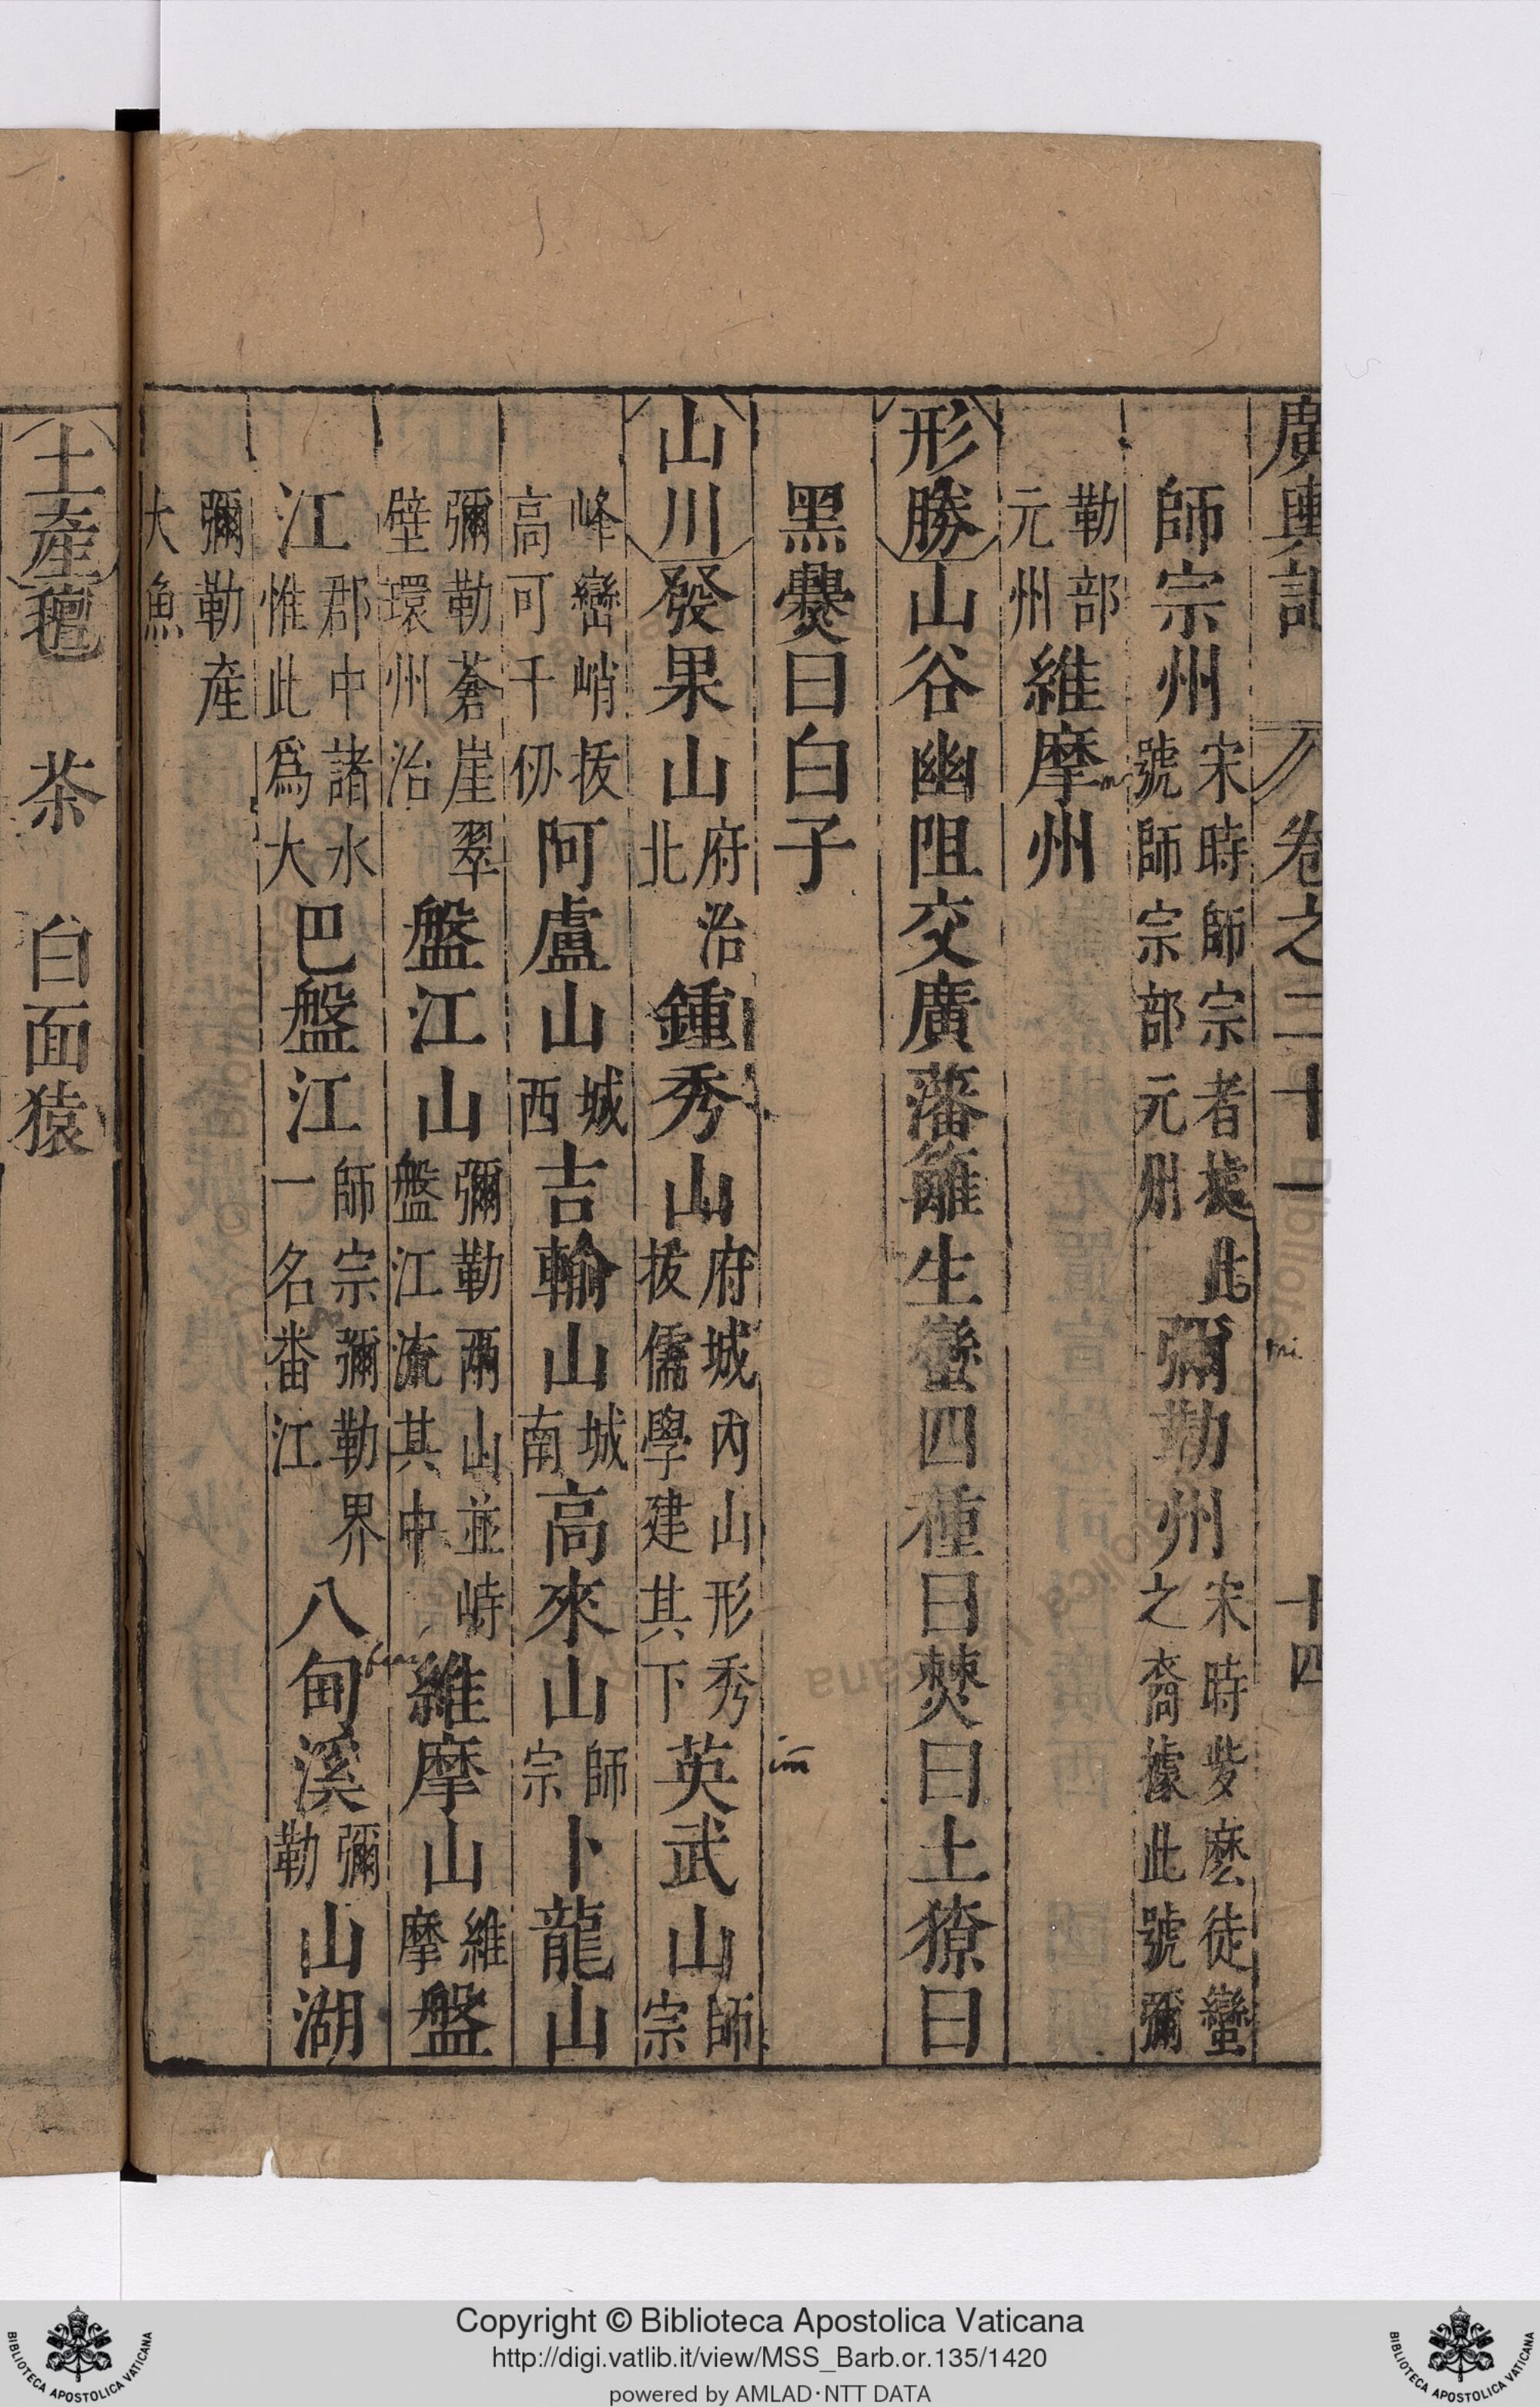 廣輿記 卷之二十一 十四
師宗州宋時師宗者據此號師宗部元州彌勒州宋時㱔麽徒蠻之裔據此號彌
勒部元州維摩州
形勝山谷幽阻交廣藩籬生蠻四種曰僰曰土獠曰
黑爨曰白子
山川發果山府治北鍾秀山府城內山形秀拔儒學建其下英武山師宗
峰巒峭拔高可千仞阿盧山城西吉輸山城南高來山師宗卜龍山
彌勒蒼崖翠壁環州治盤江山彌勒兩山並峙盤江流其中維摩山維摩盤
江郡中諸水惟此爲大巴盤江師宗彌勒界一名番江八甸溪彌勒山湖
彌勒產大魚
土產氊 茶 白面猿
Copyright © Biblioteca Apostolica Vaticana
http://digi.vatlib.it/view/MSS_Barb.or.135/1420
powered by AMLAD·NTT DATA
BIBLIOTECA APOSTOLICA VATICANA
BIBLIOTECA APOSTOLICA VATICANA